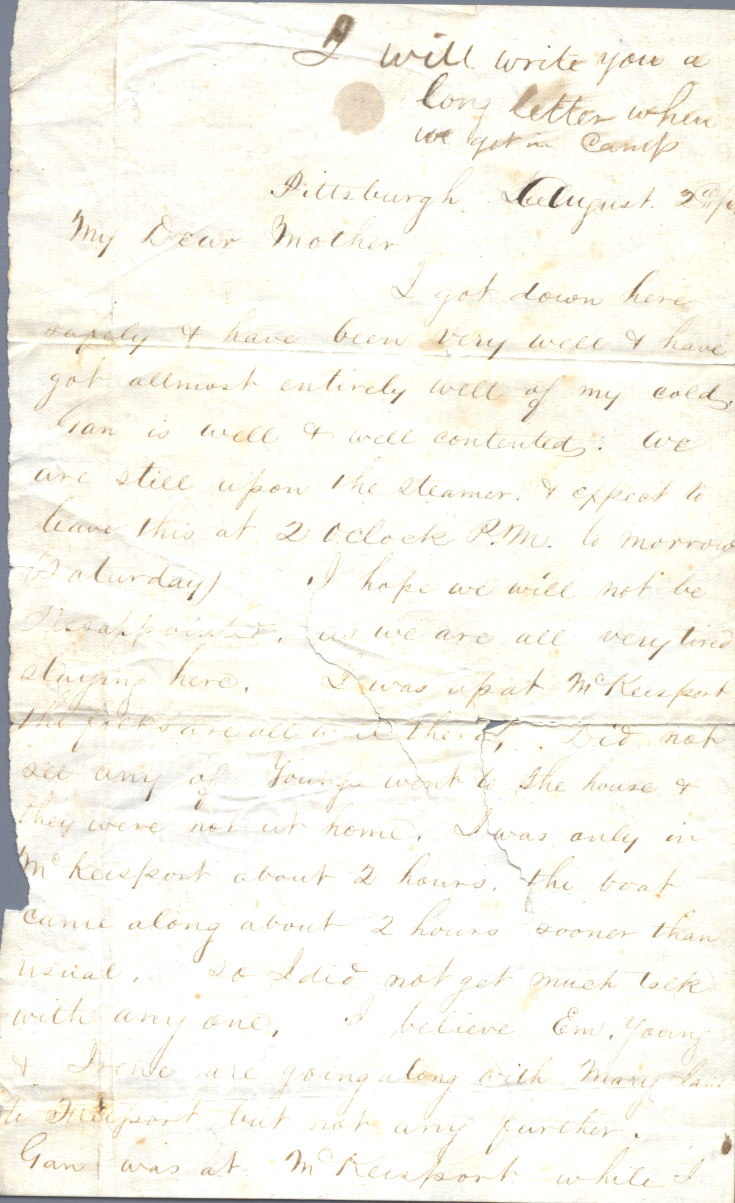 I will write you a
long letter when
we get in Camp
Pittsburgh August. 2nd
My Dear Mother
I got down here
safely & have been very well & have
got allmost entirely well of my cold,
Gan is well & well contented. We
are still upon the steamer. & expect to
leave this at 2 Oclock P.M. to morrow
(Saturday) I hope we will not be
dissappointed, as we are all very tired
staying here. I was up at McKeisport
the folks are all well there. Did not
see any of Youngs went to the house &
they were not at home. I was only in
McKeisport about 2 hours. the boat
came along about 2 hours sooner than
usual. so I did not get much talk
with any one. I believe Em. Young
& Irene are going along with Mary
to Freeport but not any further.
Gan was at McKeisport while I